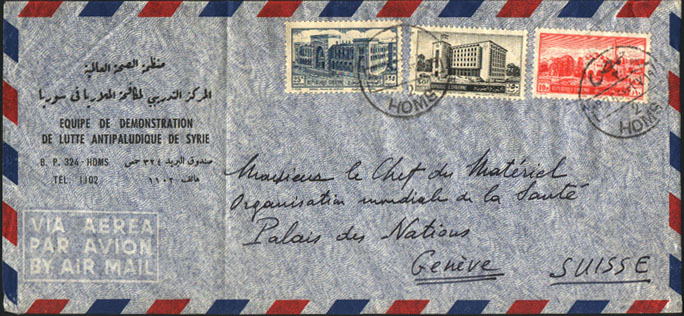 منظمة الصحة العالمية
المركز التدريبي لمكافحة الملاريا في سوريا
EQUIPE DE DEMONSTRATION
DE LUTTE ANTIPALUDIQUE DE SYRIE
B. P. 324 - HOMS صندوق البريد ٣٢٤ حمص
TEL. 1102 هاتف ١١٠٢
VIA AEREA
PAR AVION
BY AIR MAIL
HOMS
HOMS
Monsieur le Chef du Matériel
Organisation mondiale de la Santé
Palais des Nations
Genève SUISSE